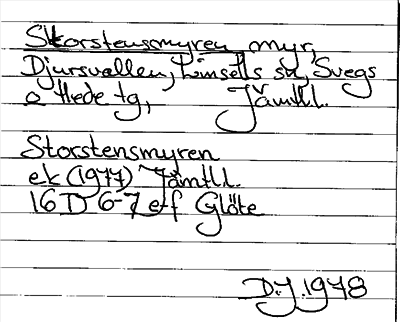 Storstensmyren myr,
Djursvallen, Linsells sn, Svegs
o Hede tg, Jämtl.
Storstensmyren
ek (1977) Jämtl.
16 D 6-7 e-f Glöte
D.J. 1978